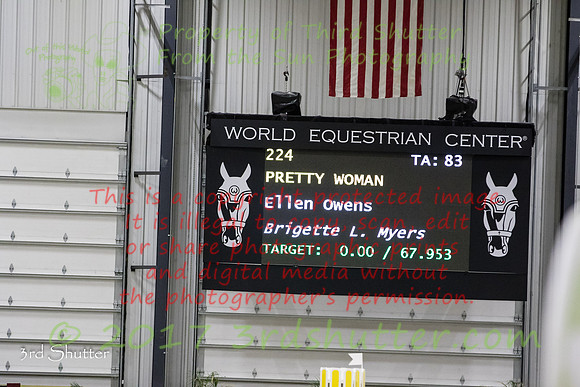 Property of Third Shutter
From the Sun Photography
WORLD EQUESTRIAN CENTER®
224 TA: 83
PRETTY WOMAN
Ellen Owens
Brigette L. Myers
TARGET: 0.00 / 67.953
This is a copyright protected image
It is illegal to copy, scan, edit
or share photographic prints
and digital media without
the photographer's permission.
© 2017 3rdshutter.com
3rd Shutter